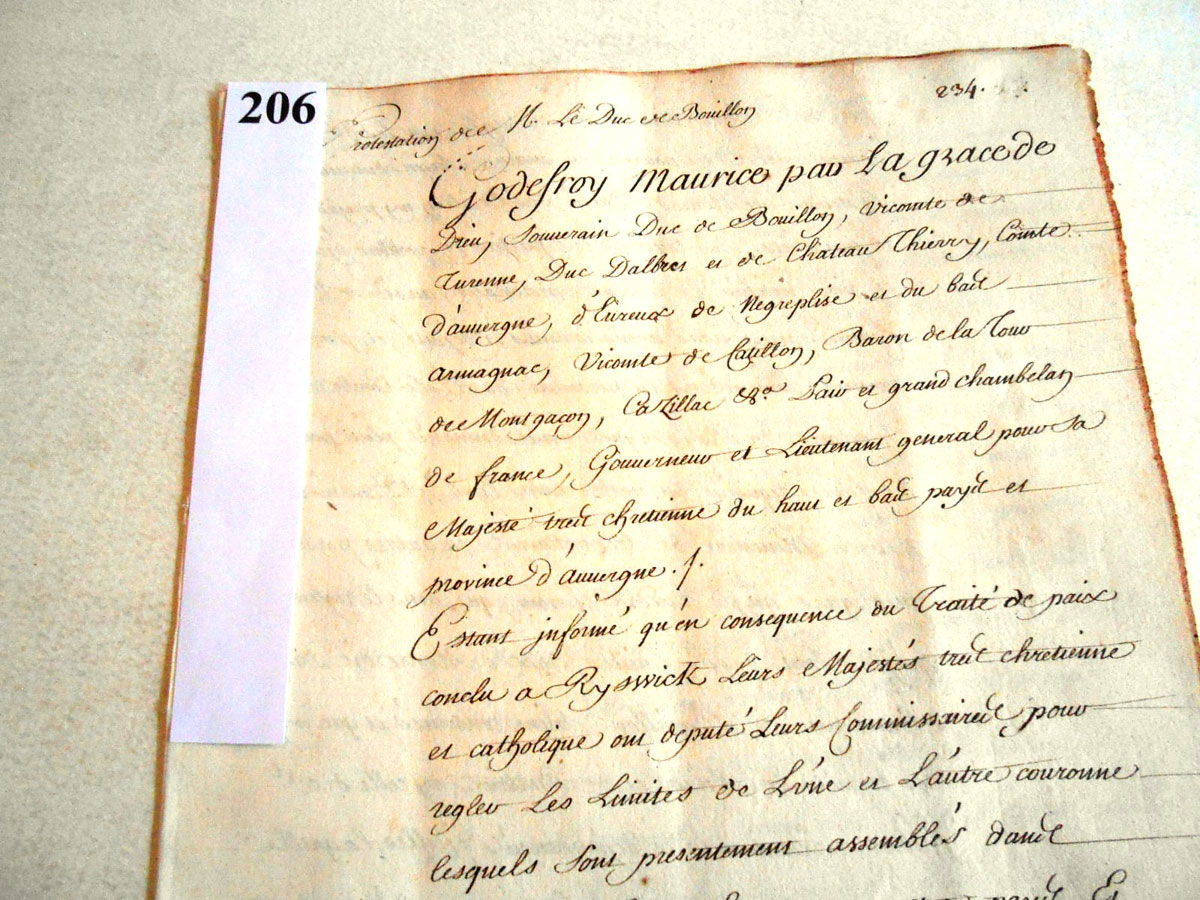 206
234.
Protestation de M. Le Duc de Bouillon
Godefroy Maurice par La grace de
Dieu, Souverain Duc de Bouillon, Vicomte de
Turenne, Duc Dalbret et de Chateau Thierry, Comte
d'auvergne, d'Eureux de Negreplise et du bas
armagnac, Vicomte de Catillon, Baron de la Tour
de Montgacon, Cazillac &ca. Pair et grand chambelan
de france, Gouverneur et Lieutenant general pour Sa
Majesté tres chretienne du haut et bas pays et
province d'auvergne./.
Estant informé qu'en consequence du Traité de paix
conclu a Ryswick Leurs Majestés tres chretienne
et catholique ont deputé Leurs Commissaires pour
regler Les Limites de L'vne et L'autre couronne
lesquels Sont presentement assemblés dans
pays Et